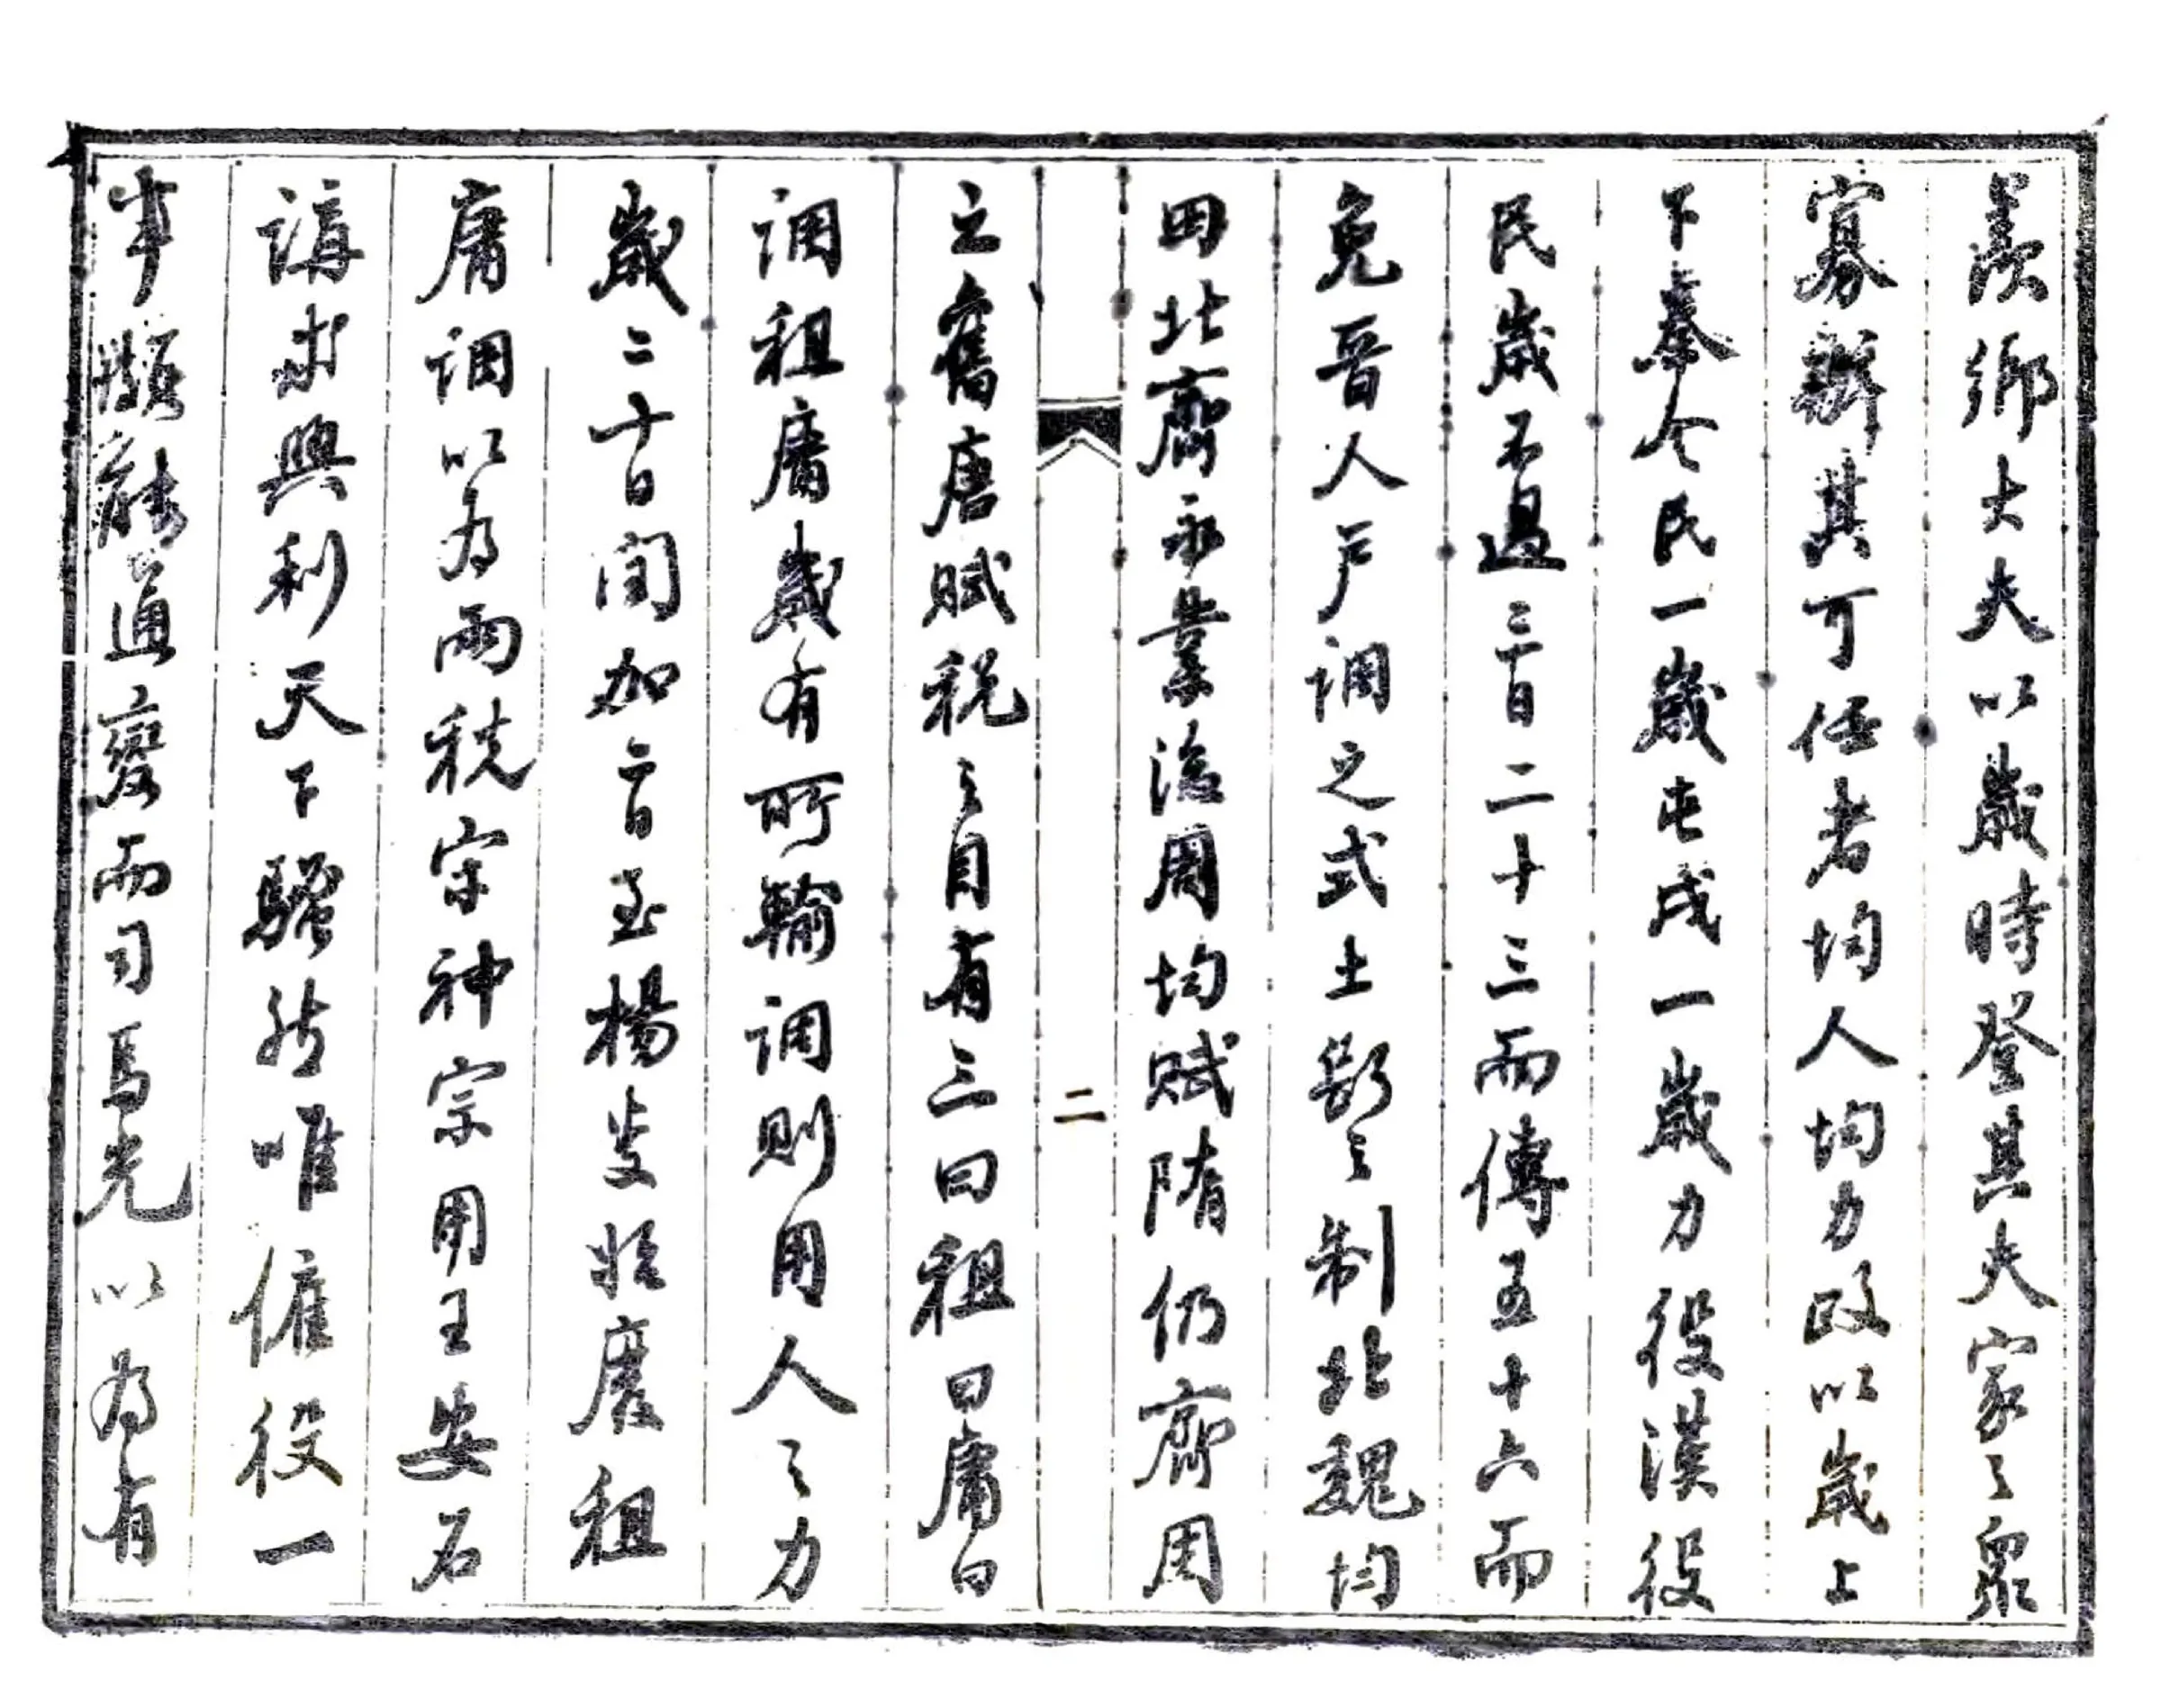 羨鄉大夫以歲時登其夫家之衆
寡辦其可任者均人均力政以歲上
下秦令民一歲屯戍一歲力役漢役
民歲不過三百二十三而傅五十六而
免晉人戶調之式土斷之制北魏均
田北齊永業後周均賦隋仍齊周
之舊唐賦稅之目有三曰租曰庸曰
調租庸歲有所輸調則用人之力
歲二十日閏加二日至楊炎始廢租
庸調以為兩稅宋神宗用王安石
講求興利天下騷然唯僱役一
事頗能通變而司馬光以為有
二